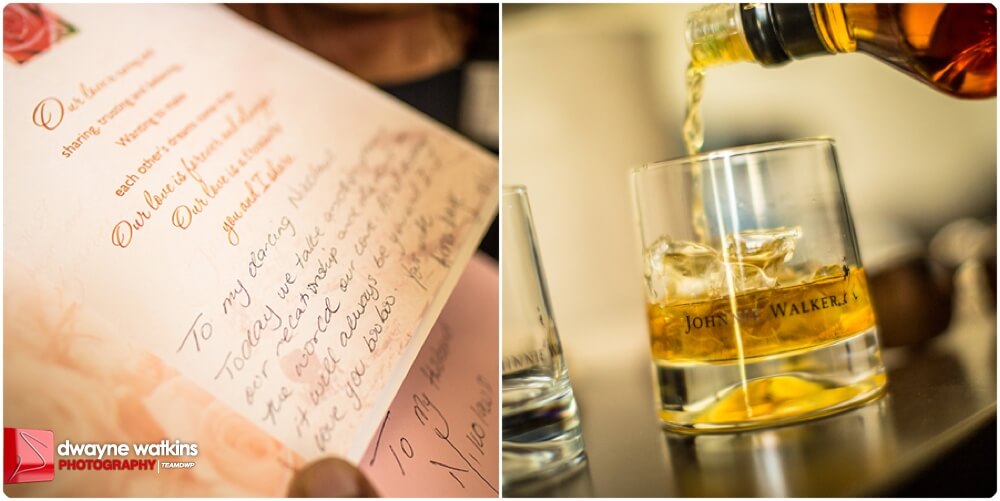 Our love is caring and
sharing, trusting and believing,
Wanting to make
each other's dreams come true.
Our love is forever and always
Our love is a treasure
you and I share.
To my darling
Today we take another
our relationship and
the world our love
it will always be you and I
love you booboo.
To My
JOHNNIE WALKER
dwayne watkins
PHOTOGRAPHY | TEAMDWP